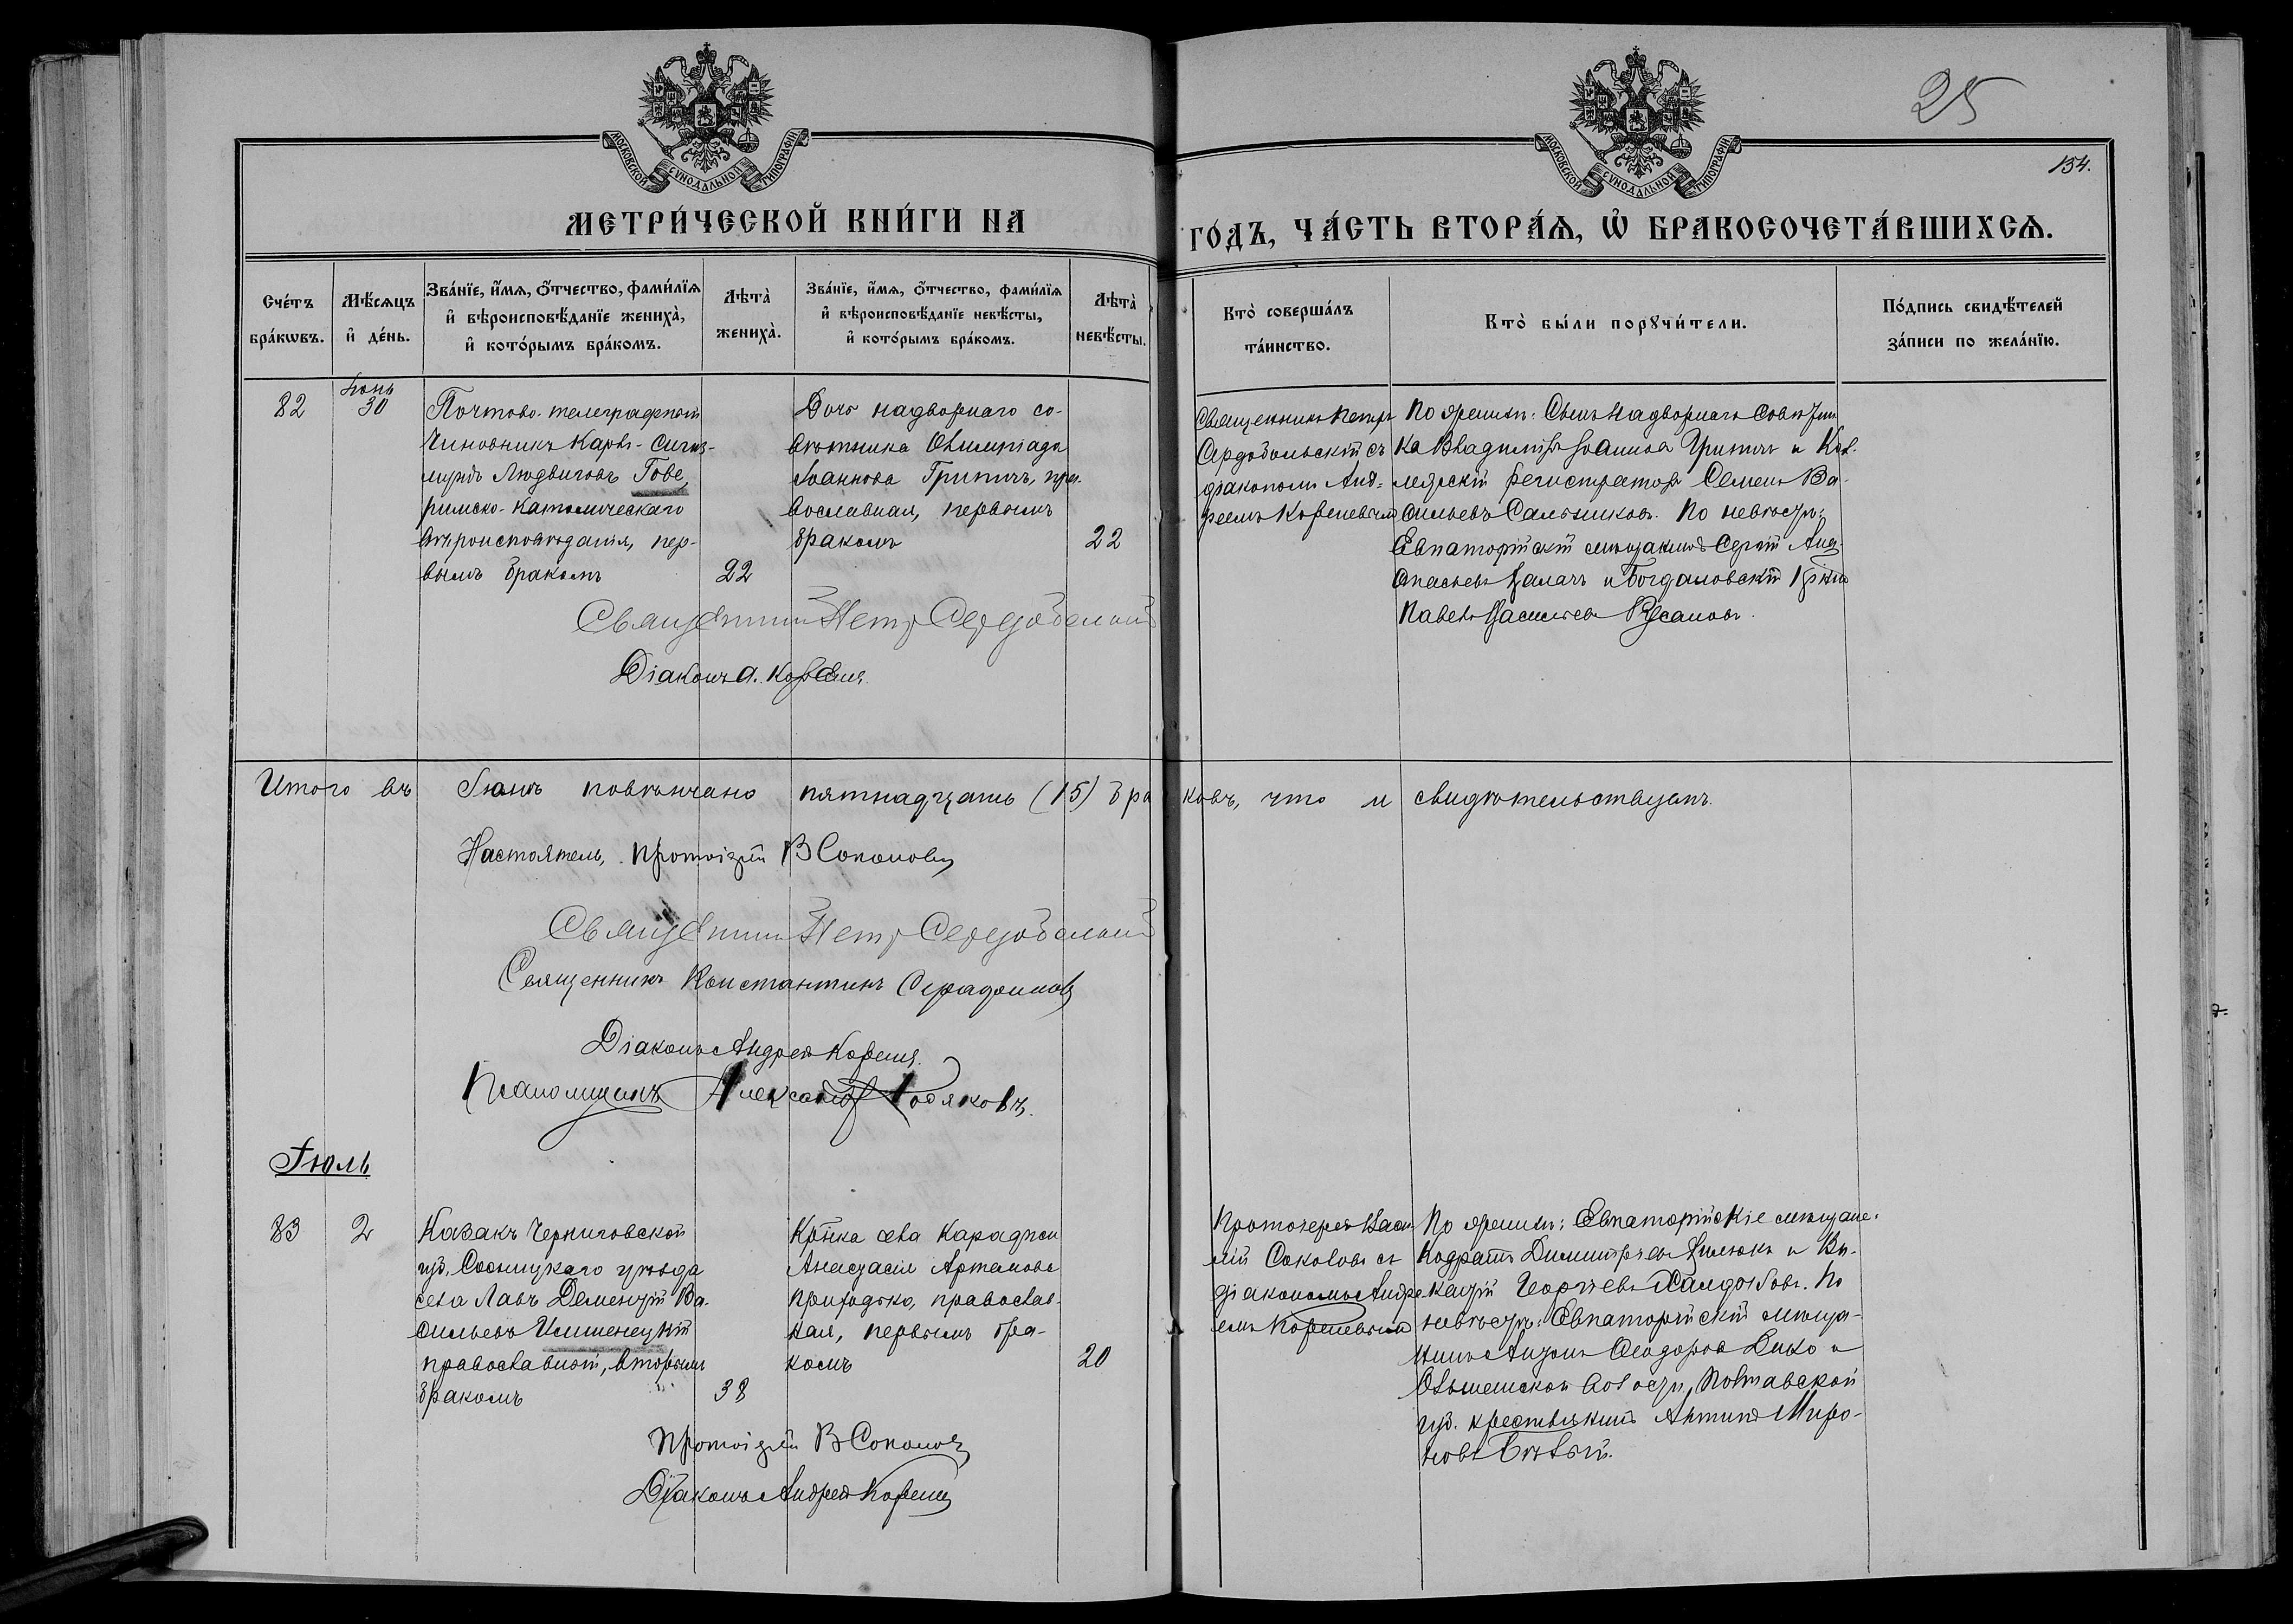 25
МОСКОВСКОЙ СѴНОДАЛЬНОЙ ТИПОГРАФІИ
МОСКОВСКОЙ СѴНОДАЛЬНОЙ ТИПОГРАФІИ
134.
МЕТРИ́ЧЕСКОЙ КНИ́ГИ НА
ГО́ДЪ, ЧА́СТЬ ВТОРА́Ѧ, Ѡ҆ БРАКОСОЧЕТА́ВШИХСѦ.
Сче́тъ бра́кѡвъ.
Мѣ́сѧцъ и҆ де́нь.
Зва́нїе, и҆́мѧ, ѻ҆́тчество, фами́лїѧ
и҆ вѣроисповѣ́данїе жениха̀,
и҆ кото́рымъ бра́комъ.
Лѣта̀ жениха̀.
Зва́нїе, и҆́мѧ, ѻ҆́тчество, фами́лїѧ
и҆ вѣроисповѣ́данїе невѣ́сты,
и҆ кото́рымъ бра́комъ.
Лѣта̀ невѣ́сты.
Кто̀ соверша́лъ та́инство.
Кто̀ бы́ли порꙋчи́тели.
По́дпись свидѣ́телей
за́писи по жела́нїю.
82
Іюнь
30
Почтово-телеграфный
чиновникъ Карлъ-Сигиз-
мундъ Людвиговъ Гове,
римско-католическаго
вѣроисповѣданія, пер-
вымъ бракомъ
22
Дочь надворнаго со-
вѣтника Олимпіада
Іоаннова Грипичъ, пра-
вославная, первымъ
бракомъ
22
Священникъ Петръ
Сердобольскій съ
діакономъ Анд-
реемъ Кореневымъ
По женихѣ: Сынъ Надворнаго Совѣтни
ка Владиміръ Іоанновъ Грипичъ и Кол-
лежскій регистраторъ Семенъ Ва-
сильевъ Сальниковъ. По невѣстѣ:
Евпаторійскій мѣщанинъ Сергій
и Богдановскій
Павелъ Васильевъ Русановъ.
Священникъ Петръ Сердобольскій
Діаконъ А. Кореня
Итого въ Іюнѣ повѣнчано пятнадцать (15) бра
ковъ, что и свидѣтельствуемъ.
Настоятель, Протоіерей В Соколовъ
Священникъ Петръ Сердобольскій
Священникъ Константинъ
Діаконъ Андрей Кореня.
Псаломщикъ Александръ
Іюль
83
2
Казакъ Черниговской
губ, Сосницкаго уѣзда
села Лавъ Дементій Ва-
сильевъ Илишенецкій
православный, вторымъ
бракомъ
38
Кр̃нка села Караджи
Анастасія Артамова
Приходько, православ-
ная, первымъ бра-
комъ
20
Протоіерей Васи-
лій Соколовъ съ
діакономъ Андре-
емъ Кореневымъ
По женихѣ: Евпаторійскіе мѣщане:
Кодратъ Димитріевъ и Ву-
калъ Георгіевъ По
невѣстѣ: Евпаторійскій мѣща-
нинъ Антонъ Ѳеодоровъ Дико и
волости, Полтавской
губ. крестьянинъ Антипъ Миро-
новъ Бѣлый.
Протоіерей В Соколовъ
Діаконъ Андрей Кореня